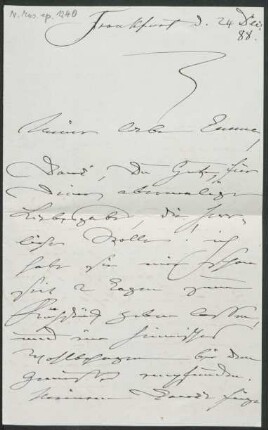 N. Mus. ep. 1240
Frankfurt d. 24 Dec.
88.
Meine liebe Emma,
Dank, Du Gute, für
Deine abermalige
Liebesgabe, die herr-
liche Stolle. ich
habe sie mir schon
seit 2 Tagen zum
Frühstück geben lassen,
und ein
Wohlbehagen bei dem
Genusse empfunden.
Meinen Dank